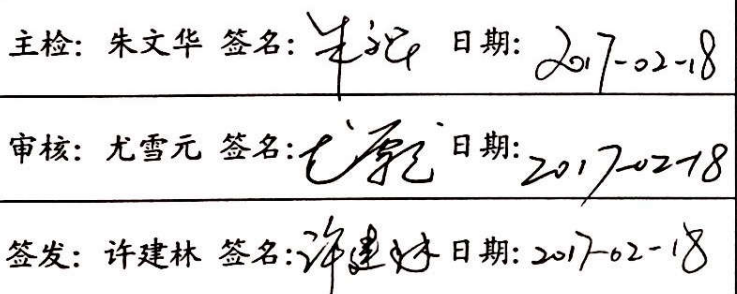 主检: 朱文华 签名: 朱文华 日期: 2017-02-18
审核: 尤雪元 签名: 尤雪元 日期: 2017-02-18
签发: 许建林 签名: 许建林 日期: 2017-02-18